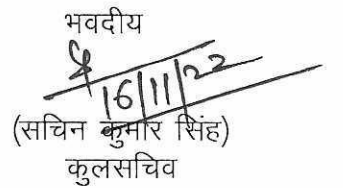 भवदीय
16/11/22
(सचिन कुमार सिंह)
कुलसचिव